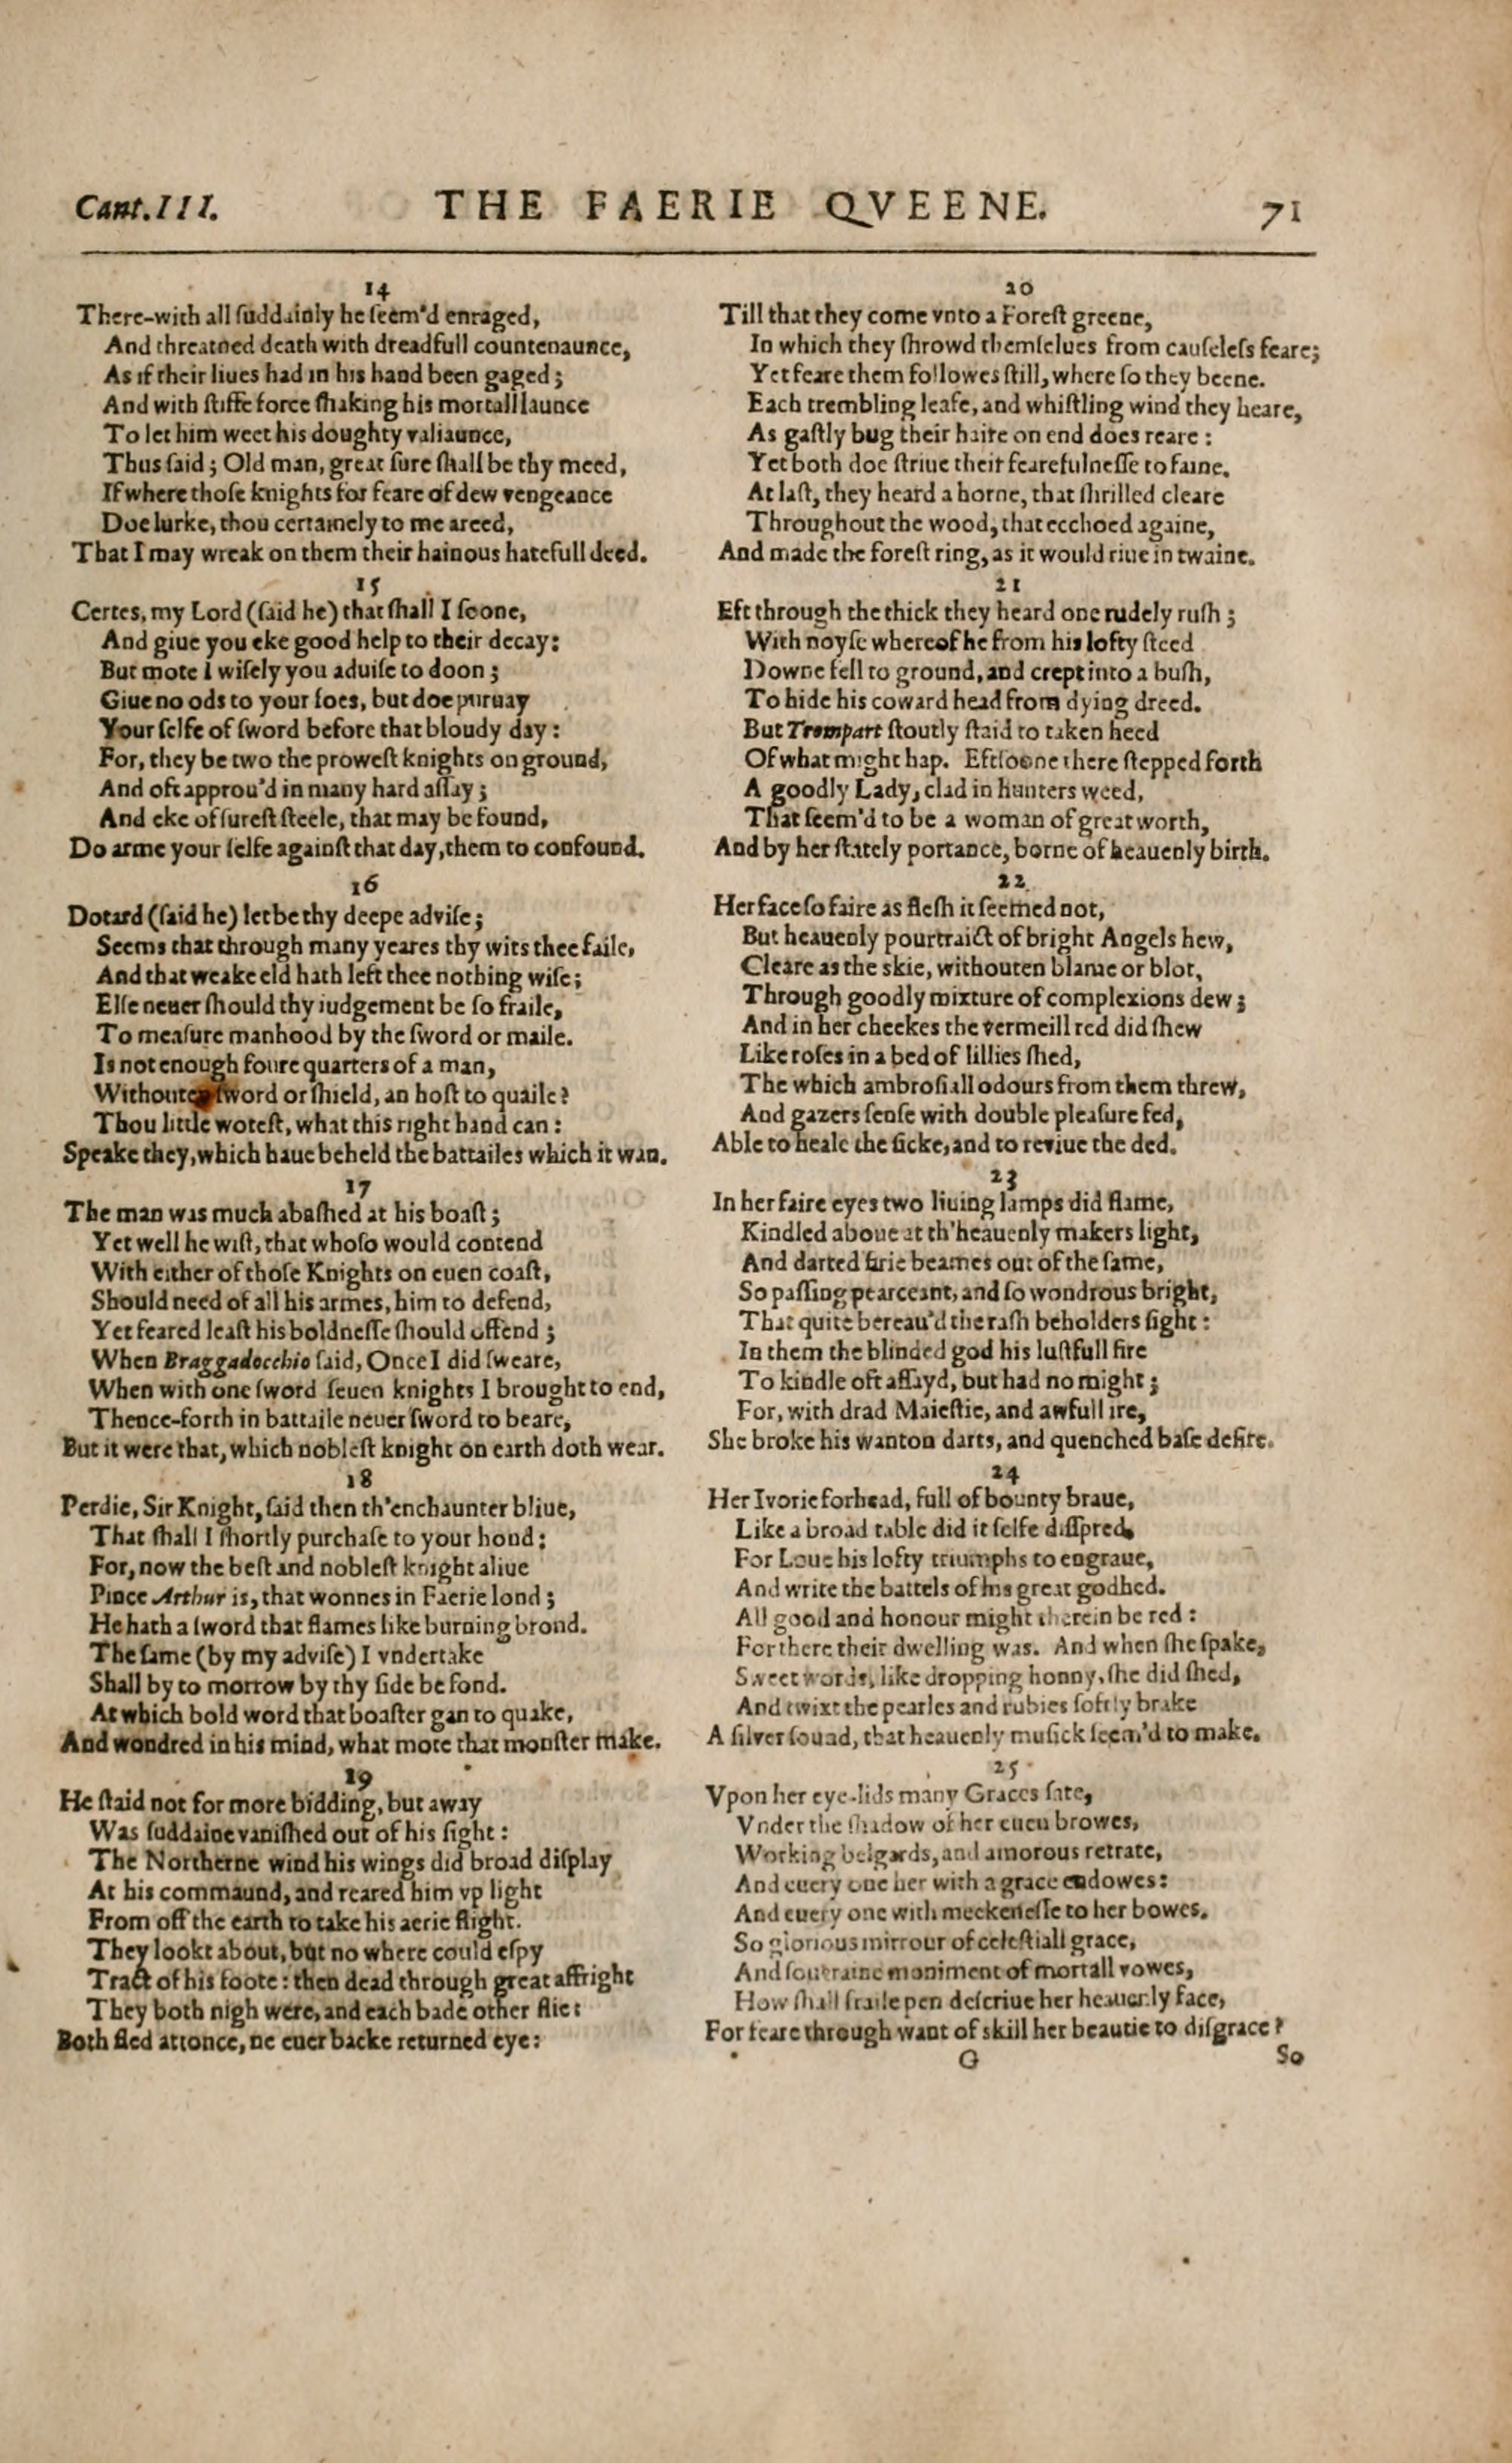 Cant. III. THE FAERIE QVEENE. 71
14
There-with all ſuddainly he ſeem'd enraged,
And threatned death with dreadfull countenaunce,
As if their liues had in his hand been gaged;
And with ſtiffe force ſhaking his mortall launce
To let him weet his doughty valiaunce,
Thus ſaid; Old man, great ſure ſhall be thy meed,
If where thoſe knights for feare of dew vengeance
Doe lurke, thou certainely to me areed,
That I may wreak on them their hainous hatefull deed.
15
Certes, my Lord (ſaid he) that ſhall I ſoone,
And giue you eke good help to their decay:
But mote I wiſely you aduiſe to doon;
Giue no ods to your foes, but doe puruay
Your ſelfe of ſword before that bloudy day:
For, they be two the proweſt knights on ground,
And oft approu'd in many hard aſſay;
And eke of ſureſt ſteele, that may be found,
Do arme your ſelfe againſt that day, them to confound.
16
Dotard (ſaid he) let be thy deepe adviſe;
Seems that through many yeares thy wits thee faile,
And that weake eld hath left thee nothing wiſe;
Elſe neuer ſhould thy iudgement be ſo fraile,
To meaſure manhood by the ſword or maile.
Is not enough foure quarters of a man,
Withouten ſword or ſhield, an hoſt to quaile?
Thou little woteſt, what this right hand can:
Speake they, which haue beheld the battailes which it wan.
17
The man was much abaſhed at his boaſt;
Yet well he wiſt, that whoſo would contend
With either of thoſe Knights on euen coaſt,
Should need of all his armes, him to defend,
Yet feared leaſt his boldneſſe ſhould offend;
When Braggadocchio ſaid, Once I did ſweare,
When with one ſword ſeuen knights I brought to end,
Thence-forth in battaile neuer ſword to beare,
But it were that, which nobleſt knight on earth doth wear.
18
Perdie, Sir Knight, ſaid then th'enchaunter bliue,
That ſhall I ſhortly purchaſe to your hond:
For, now the beſt and nobleſt knight aliue
Pince Arthur is, that wonnes in Faerie lond;
He hath a ſword that flames like burning brond.
The ſame (by my adviſe) I vndertake
Shall by to morrow by thy ſide be fond.
At which bold word that boaſter gan to quake,
And wondred in his mind, what mote that monſter make.
19
He ſtaid not for more bidding, but away
Was ſuddaine vaniſhed out of his ſight:
The Northerne wind his wings did broad diſplay
At his commaund, and reared him vp light
From off the earth to take his aerie flight.
They lookt about, but no where could eſpy
Tract of his foote: then dead through great affright
They both nigh were, and each bade other flie:
Both fled attonce, ne euer backe returned eye:
20
Till that they come vnto a Foreſt greene,
In which they ſhrowd themſelues from cauſeleſs feare;
Yet feare them followes ſtill, where ſo they beene.
Each trembling leafe, and whiſtling wind they heare,
As gaſtly bug their haire on end does reare:
Yet both doe ſtriue their fearefulneſſe to faine.
At laſt, they heard a horne, that ſhrilled cleare
Throughout the wood, that ecchoed againe,
And made the foreſt ring, as it would riue in twaine.
21
Eft through the thick they heard one rudely ruſh;
With noyſe whereof he from his lofty ſteed
Downe fell to ground, and crept into a buſh,
To hide his coward head from dying dreed.
But Trompart ſtoutly ſtaid to taken heed
Of what might hap. Eftſoone there ſtepped forth
A goodly Lady, clad in hunters weed,
That ſeem'd to be a woman of great worth,
And by her ſtately portance, borne of heauenly birth.
22
Her face ſo faire as fleſh it ſeemed not,
But heauenly pourtraict of bright Angels hew,
Cleare as the skie, withouten blame or blot,
Through goodly mixture of complexions dew;
And in her cheekes the vermeill red did ſhew
Like roſes in a bed of lillies ſhed,
The which ambroſiall odours from them threw,
And gazers ſenſe with double pleaſure fed,
Able to heale the ſicke, and to reviue the ded.
23
In her faire eyes two liuing lamps did flame,
Kindled aboue at th'heauenly makers light,
And darted firie beames out of the ſame,
So paſſing pearceant, and ſo wondrous bright,
That quite bereau'd the raſh beholders ſight:
In them the blinded god his luſtfull fire
To kindle oft aſſayd, but had no might;
For, with drad Maieſtie, and awfull ire,
She broke his wanton darts, and quenched baſe deſire.
24
Her Ivorie forhead, full of bounty braue,
Like a broad table did it ſelfe diſpred,
For Loue his lofty triumphs to engraue,
And write the battels of his great godhed.
All good and honour might therein be red:
For there their dwelling was. And when ſhe ſpake,
Sweet words, like dropping honny, ſhe did ſhed,
And twixt the pearles and rubies ſoftly brake
A ſilver ſound, that heauenly muſick ſeem'd to make.
25
Vpon her eye-lids many Graces ſate,
Vnder the ſhadow of her euen browes,
Working belgards, and amorous retrate,
And euery one her with a grace endowes:
And euery one with meekeneſſe to her bowes.
So glorious mirrour of celeſtiall grace,
And ſoueraine moniment of mortall vowes,
How ſhall fraile pen deſcriue her heauenly face,
For feare through want of skill her beautie to diſgrace?
G So